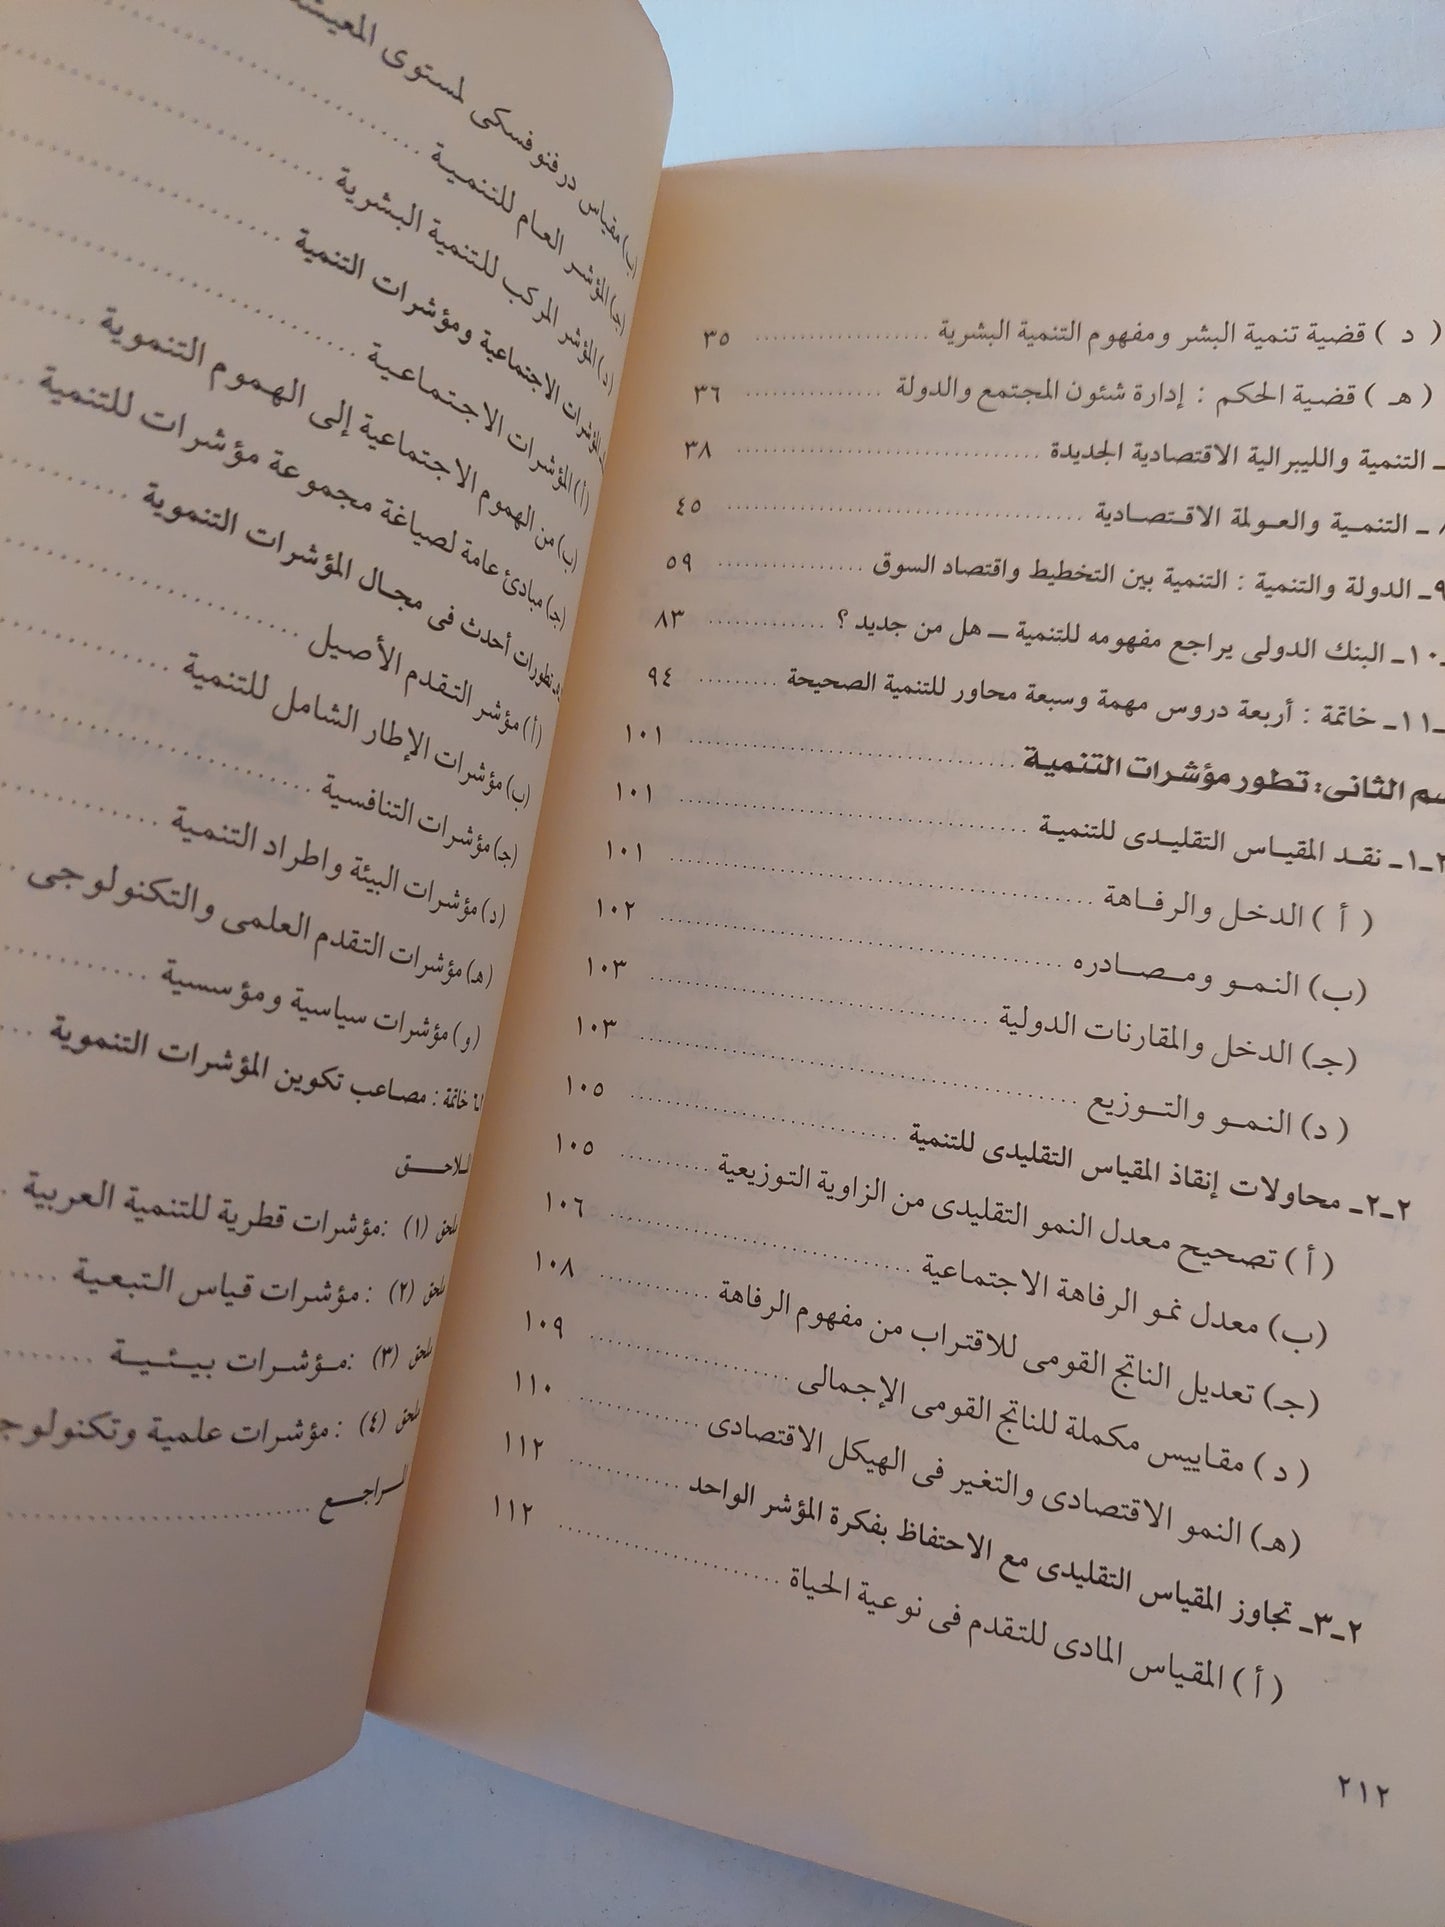 ( د ) قضية تنمية البشر ومفهوم التنمية البشرية .................... ٣٥
( هـ ) قضية الحكم : إدارة شئون المجتمع والدولة ............... ٣٦
ـ التنمية والليبرالية الاقتصادية الجديدة .................................. ٣٨
ـ التنمـية والعـولمة الاقـتصـادية ....................................... ٤٥
٩ـ الدولة والتنمية : التنمية بين التخطيط واقتصاد السوق ................ ٥٩
١٠ـ البنك الدولى يراجع مفهومه للتنمية ــ هل من جديد ؟ ............. ٨٣
١١ـ خاتمة : أربعة دروس مهمة وسبعة محاور للتنمية الصحيحة ......... ٩٤
الثانى: تطور مؤشرات التنميـة .................................... ١٠١
١ـ نقـد المقيـاس التقليـدى للتنميـة ...................................... ١٠١
( أ ) الدخـل والرفـاهة ............................................... ١٠١
(ب) النمـو ومـصـادره ............................................... ١٠٢
(جـ) الدخل والمقارنات الدولية ........................................ ١٠٣
( د) النمـو والتـوزيع ................................................. ١٠٣
٢ـ٢ـ محاولات إنقاذ المقياس التقليدى للتنمية .............................. ١٠٥
( أ ) تصحيح معدل النمو التقليدى من الزاوية التوزيعية ............ ١٠٥
(ب) معدل نمو الرفاهة الاجتماعية .................................... ١٠٦
(جـ) تعديل الناتج القومى للاقتراب من مفهوم الرفاهة .............. ١٠٨
( د ) مقاييس مكملة للناتج القومى الإجمالى ...................... ١٠٩
(هـ) النمو الاقتصادى والتغير فى الهيكل الاقتصادى .............. ١١٠
٢ـ٣ـ تجاوز المقياس التقليدى مع الاحتفاظ بفكرة المؤشر الواحد ............ ١١٢
( أ ) المقياس المادى للتقدم فى نوعية الحياة ........................ ١١٢
٢١٢
(ب) مقياس درفنوفسكى لمستوى المعيشة
(جـ) المؤشر العـام للتنميـة ..............................
(د) المؤشر المركب للتنمية البشرية ..............................
المؤشرات الاجتماعية ومؤشرات التنمية ..............................
(أ) المؤشرات الاجـتمـاعـية ..............................
(ب) من الهموم الاجتماعية إلى الهموم التنموية .......
(جـ) مبادئ عامة لصياغة مجموعة مؤشرات للتنمية ...
تطورات أحدث فى مجـال المؤشرات التنموية ..............
(أ) مؤشر التـقدم الأصيل ..............................
(ب) مؤشرات الإطار الشامل للتنمية ....................
(جـ) مؤشرات التنافسية ..............................
(د) مؤشرات البيئة واطراد التنمية ....................
(هـ) مؤشرات التقدم العلمى والتكنولوجى ..
(و) مؤشرات سياسية ومؤسسية ....................
خاتمة : مصاعب تكوين المؤشرات التنموية ...
الملاحـــق
ملحق (١) :مؤشرات قطرية للتنمية العربية .
ملحق (٢) : مؤشرات قياس التبعية .....
ملحق (٣) :مـؤشـرات بـيـئـيـة ...........
ملحق (٤) : مؤشرات علمية
المـراجـــع ..............................